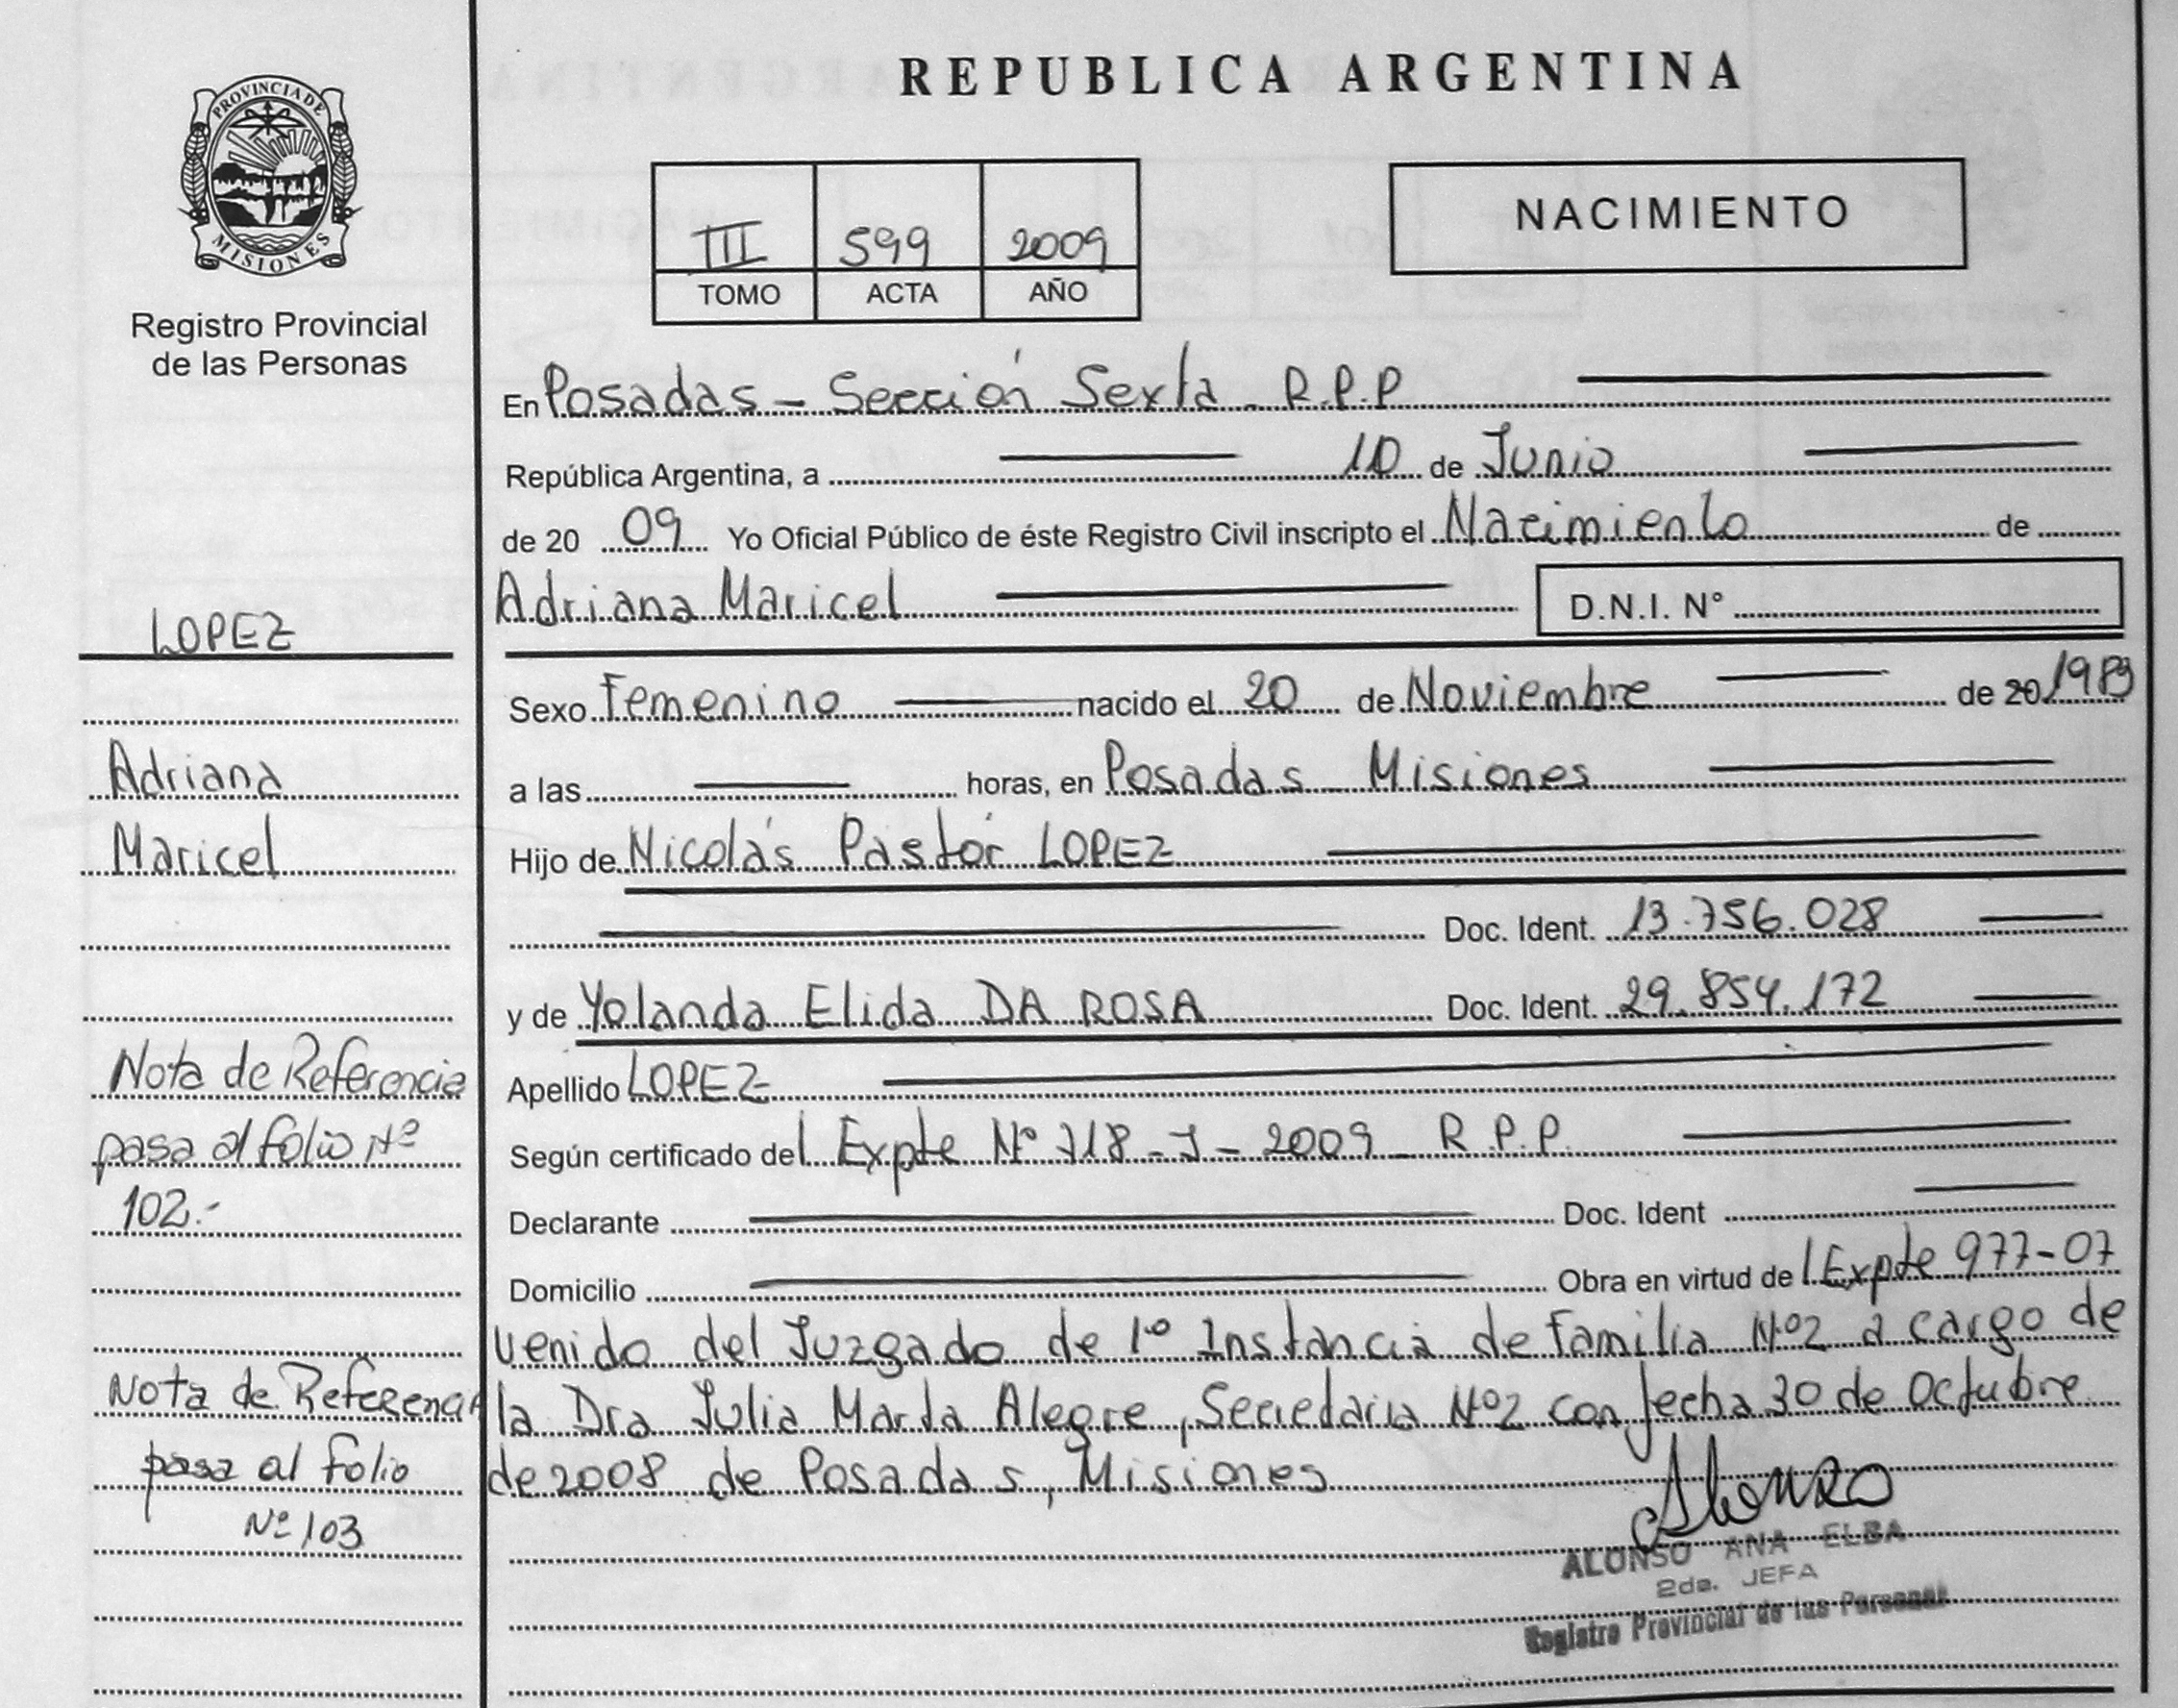 PROVINCIA DE
MISIONES
Registro Provincial
de las Personas
REPUBLICA ARGENTINA
III 599 2009
TOMO ACTA AÑO
NACIMIENTO
En Posadas - Sección Sexta - R.P.P
República Argentina, a 10 de Junio
de 20 09 Yo Oficial Público de éste Registro Civil inscripto el Nacimiento de
Adriana Maricel D.N.I. N°
Sexo Femenino nacido el 20 de Noviembre de 20
a las horas, en Posadas Misiones
Hijo de Nicolás Pastór LOPEZ
Doc. Ident. 13.756.028
y de Yolanda Elida DA ROSA Doc. Ident. 29.854.172
Apellido LOPEZ
Según certificado del Expte N° 718 - J - 2009 - R.P.P.
Declarante Doc. Ident
Domicilio Obra en virtud del Expte 977-07
venido del Juzgado de 1° Instancia de Familia N°2 a cargo de
la Dra Julia Marta Alegre, Secretaria N°2 con fecha 30 de Octubre
de 2008 de Posadas, Misiones
Alonso
ALONSO ANA ELBA
2da. JEFA
Registro Provincial de las Personas
LOPEZ
Adriana
Maricel
Nota de Referencia
pasa al folio Nº
102.-
Nota de Referencia
pasa al folio
Nº 103